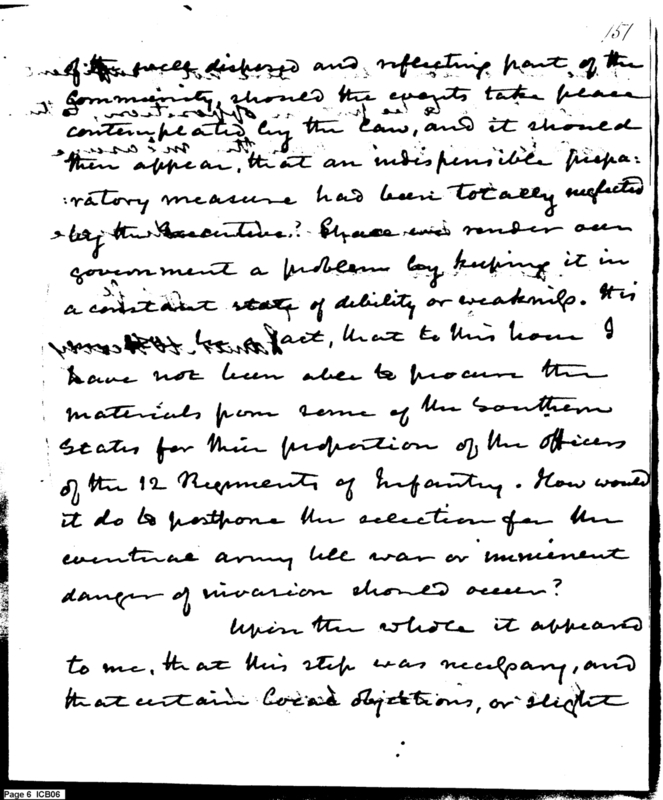 151
of the well disposed and reflecting part of the
Community, should the events take place
contemplated by the law, and it should
then appear, that an indispensible prepa:
:ratory measure had been totally neglected
by the Executive? Shall we render our
government a problem by keeping it in
a constant state of debility or weakness. It is
fact, that to this hour I
have not been able to procure the
materials from some of the Southern
States for their proportion of the officers
of the 12 Regiments of Infantry. How would
it do to postpone the selection for the
eventual army till war or imminent
danger of invasion should occur?
Upon the whole it appeared
to me, that this step was necessary, and
that certain local objections, or slight
Page 6 ICB06